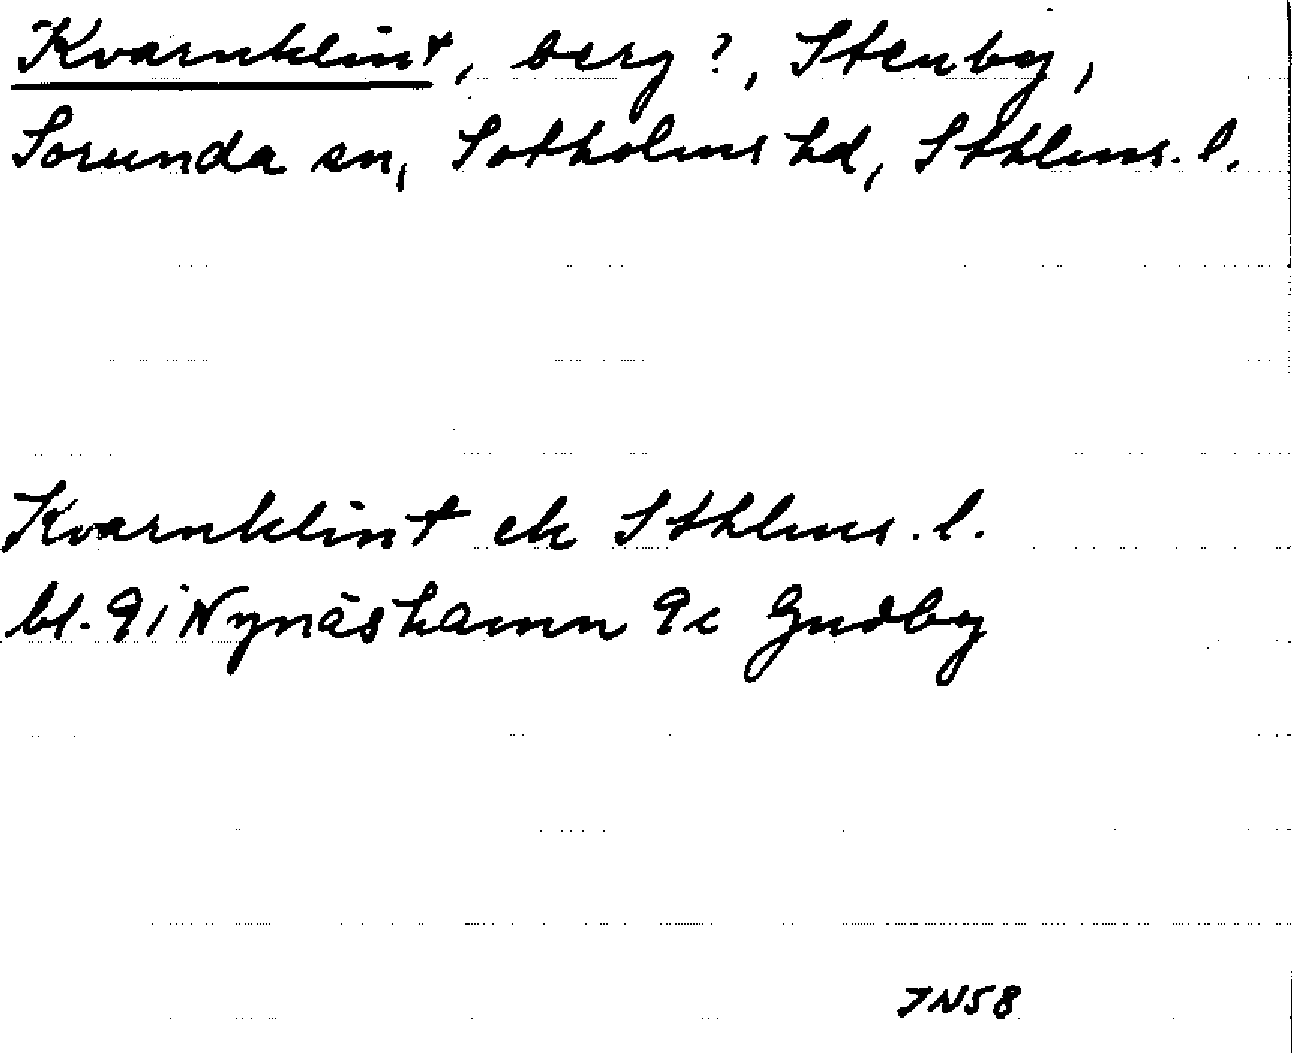 Kvarnklint, berg?, Stenby,
Sorunda sn, Sotholms hd, Sthlms. l.
Kvarnklint ek Sthlms. l.
bl. 9i Nynäshamn 9c Gudby
JN58